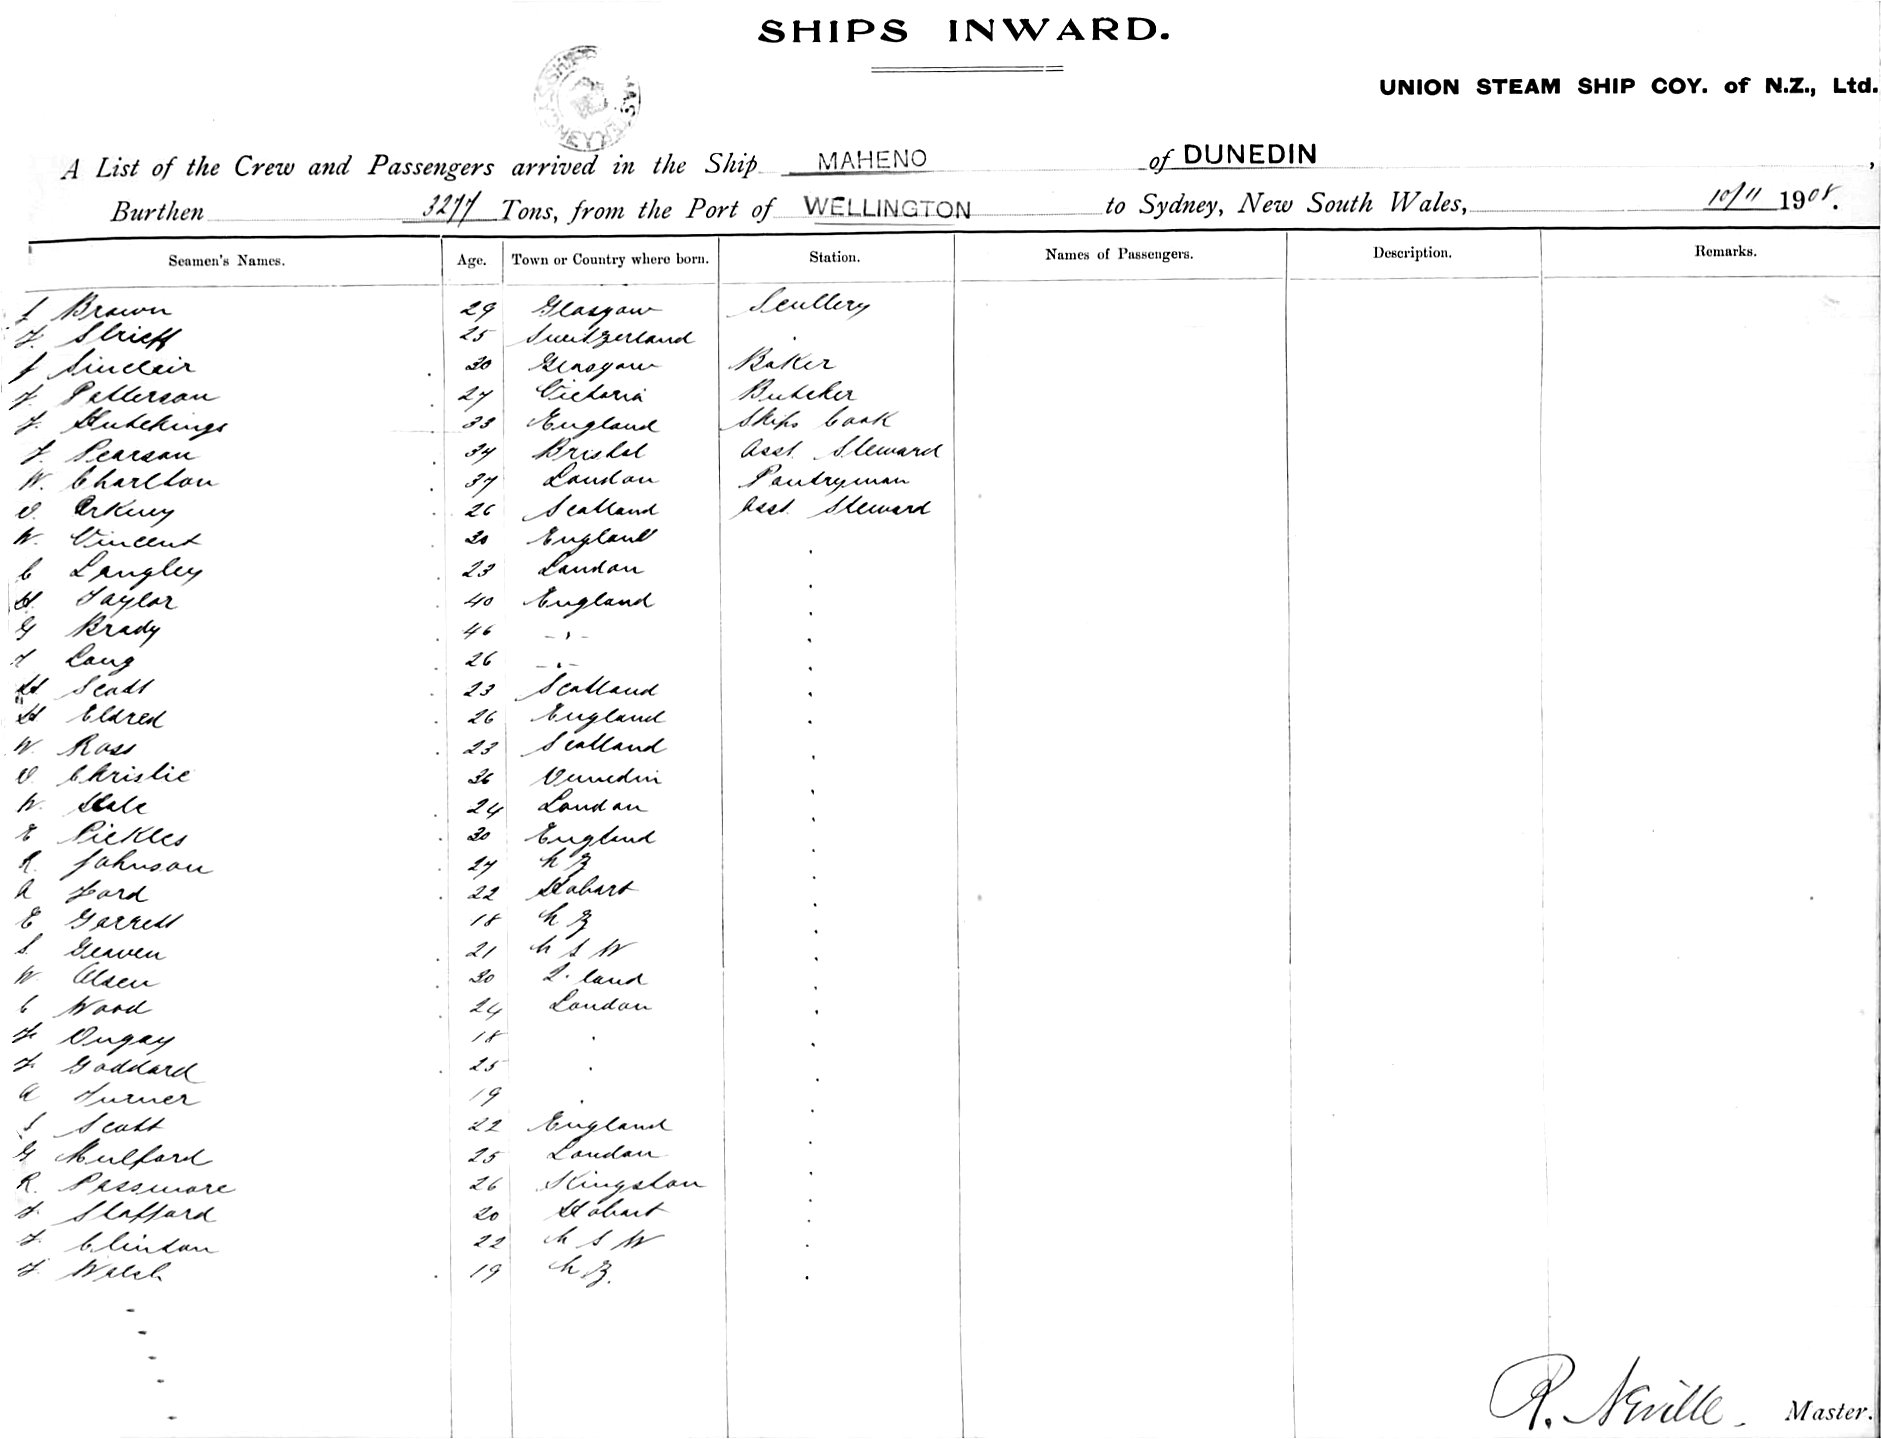 SHIPS INWARD.
UNION STEAM SHIP COY. of N.Z., Ltd.
A List of the Crew and Passengers arrived in the Ship MAHENO of DUNEDIN,
Burthen 3277 Tons, from the Port of WELLINGTON to Sydney, New South Wales, 10/11 1908.
Seamen's Names. Age. Town or Country where born. Station. Names of Passengers. Description. Remarks.
J Brown 29 Glasgow Scullery
F. Strieff 25 Switzerland
J Sinclair 30 Glasgow Baker
F. Patterson 27 Victoria Butcher
F. Hutchings 33 England Ships Cook
F. Pearson 34 Bristol Asst. Steward
W. Charlton 37 London Pantryman
D. 26 Scotland Asst. Steward
W. Vincent 30 England
C Langley 23 London
H. Taylor 40 England
G Brady 46 - , -
T Long 26 - , -
H Scott 23 Scotland
H Eldred 26 England
W. Ross 23 Scotland
D. Christie 36 Dunedin
W. Hale 24 London
E Pickles 30 England
R. Johnson 27 N Z
A Ford 22 Hobart
E Garrett 18 N Z
S. Geaven 21 N S W
W Olsen 30 Q. land
C Wood 24 London
F Dugay 18
F. Goddard 25
A Turner 19
J Scott 22 England
G Mulford 25 London
R. Passmore 26 Kingston
F. Stafford 20 Hobart
F. Clinton 22 N S W
F. Walsh 19 N Z.
R. Neville Master.